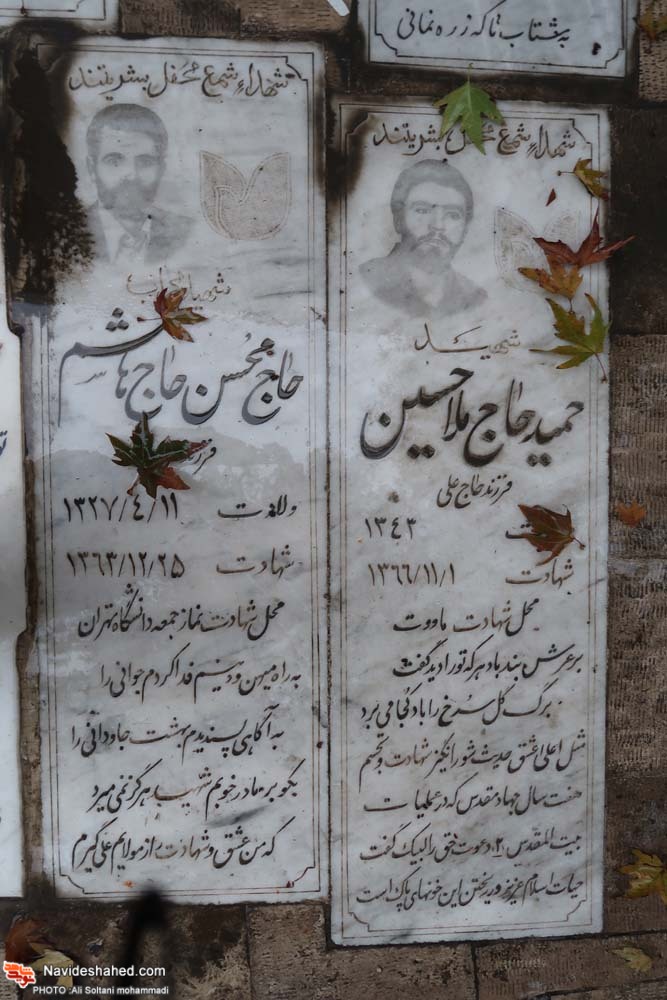 پشتاب تا که زره نمانی
شهداء شمع محفل بشریتند
شهید
حمید حاج ملاحسین
فرزند حاج علی
۱۳۴۳
شهادت ۱۳۶۶/۱۱/۱
محل شهادت ماووت
بر عرش بند باد هر که تو را دید گفت
برگ گل سرخ را باد کجا می برد
مثل اعلی عشق حدیث شورانگیز شهادت و تجسم
هفت سال جهاد مقدس که در عملیات
بیت المقدس ۲، دعوت حق را لبیک گفت
حیات اسلام عزیز در ریختن این خونهای پاک است
شهداء شمع محفل بشریتند
حاج محسن حاج هاشم
ولادت ۱۳۲۷/۴/۱۱
شهادت ۱۳۶۳/۱۲/۲۵
محل شهادت نماز جمعه دانشگاه تهران
به راه میهن و دینم فدا کردم جوانی را
به آگاهی پسندیدم بهشت جاودانی را
بگو بر مادر خوبم شهید هرگز نمی میرد
که من عشق و شهادت را از مولایم علی گیرم
Navideshahed.com
PHOTO :Ali Soltani mohammadi